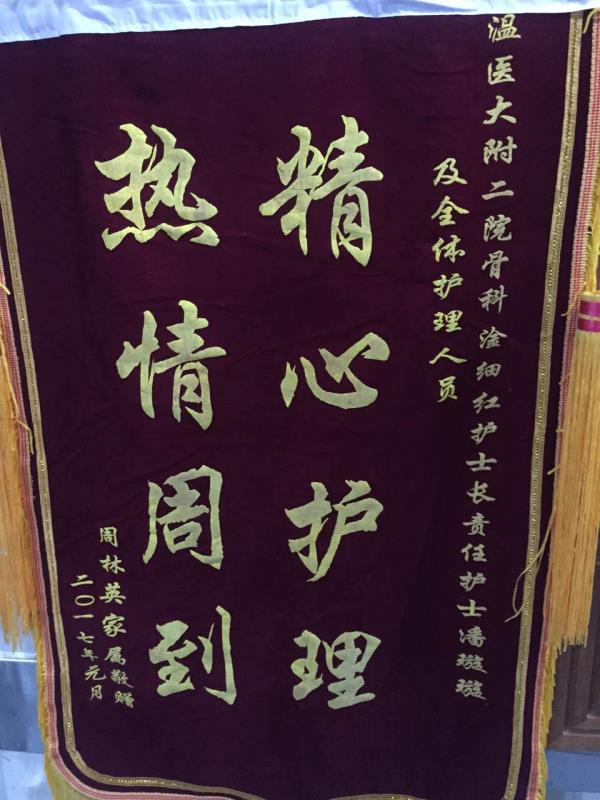 温医大附二院骨科涂细红护士长责任护士潘璇璇
及全体护理人员
精心护理
热情周到
周林英家属敬赠
二〇一七年元月